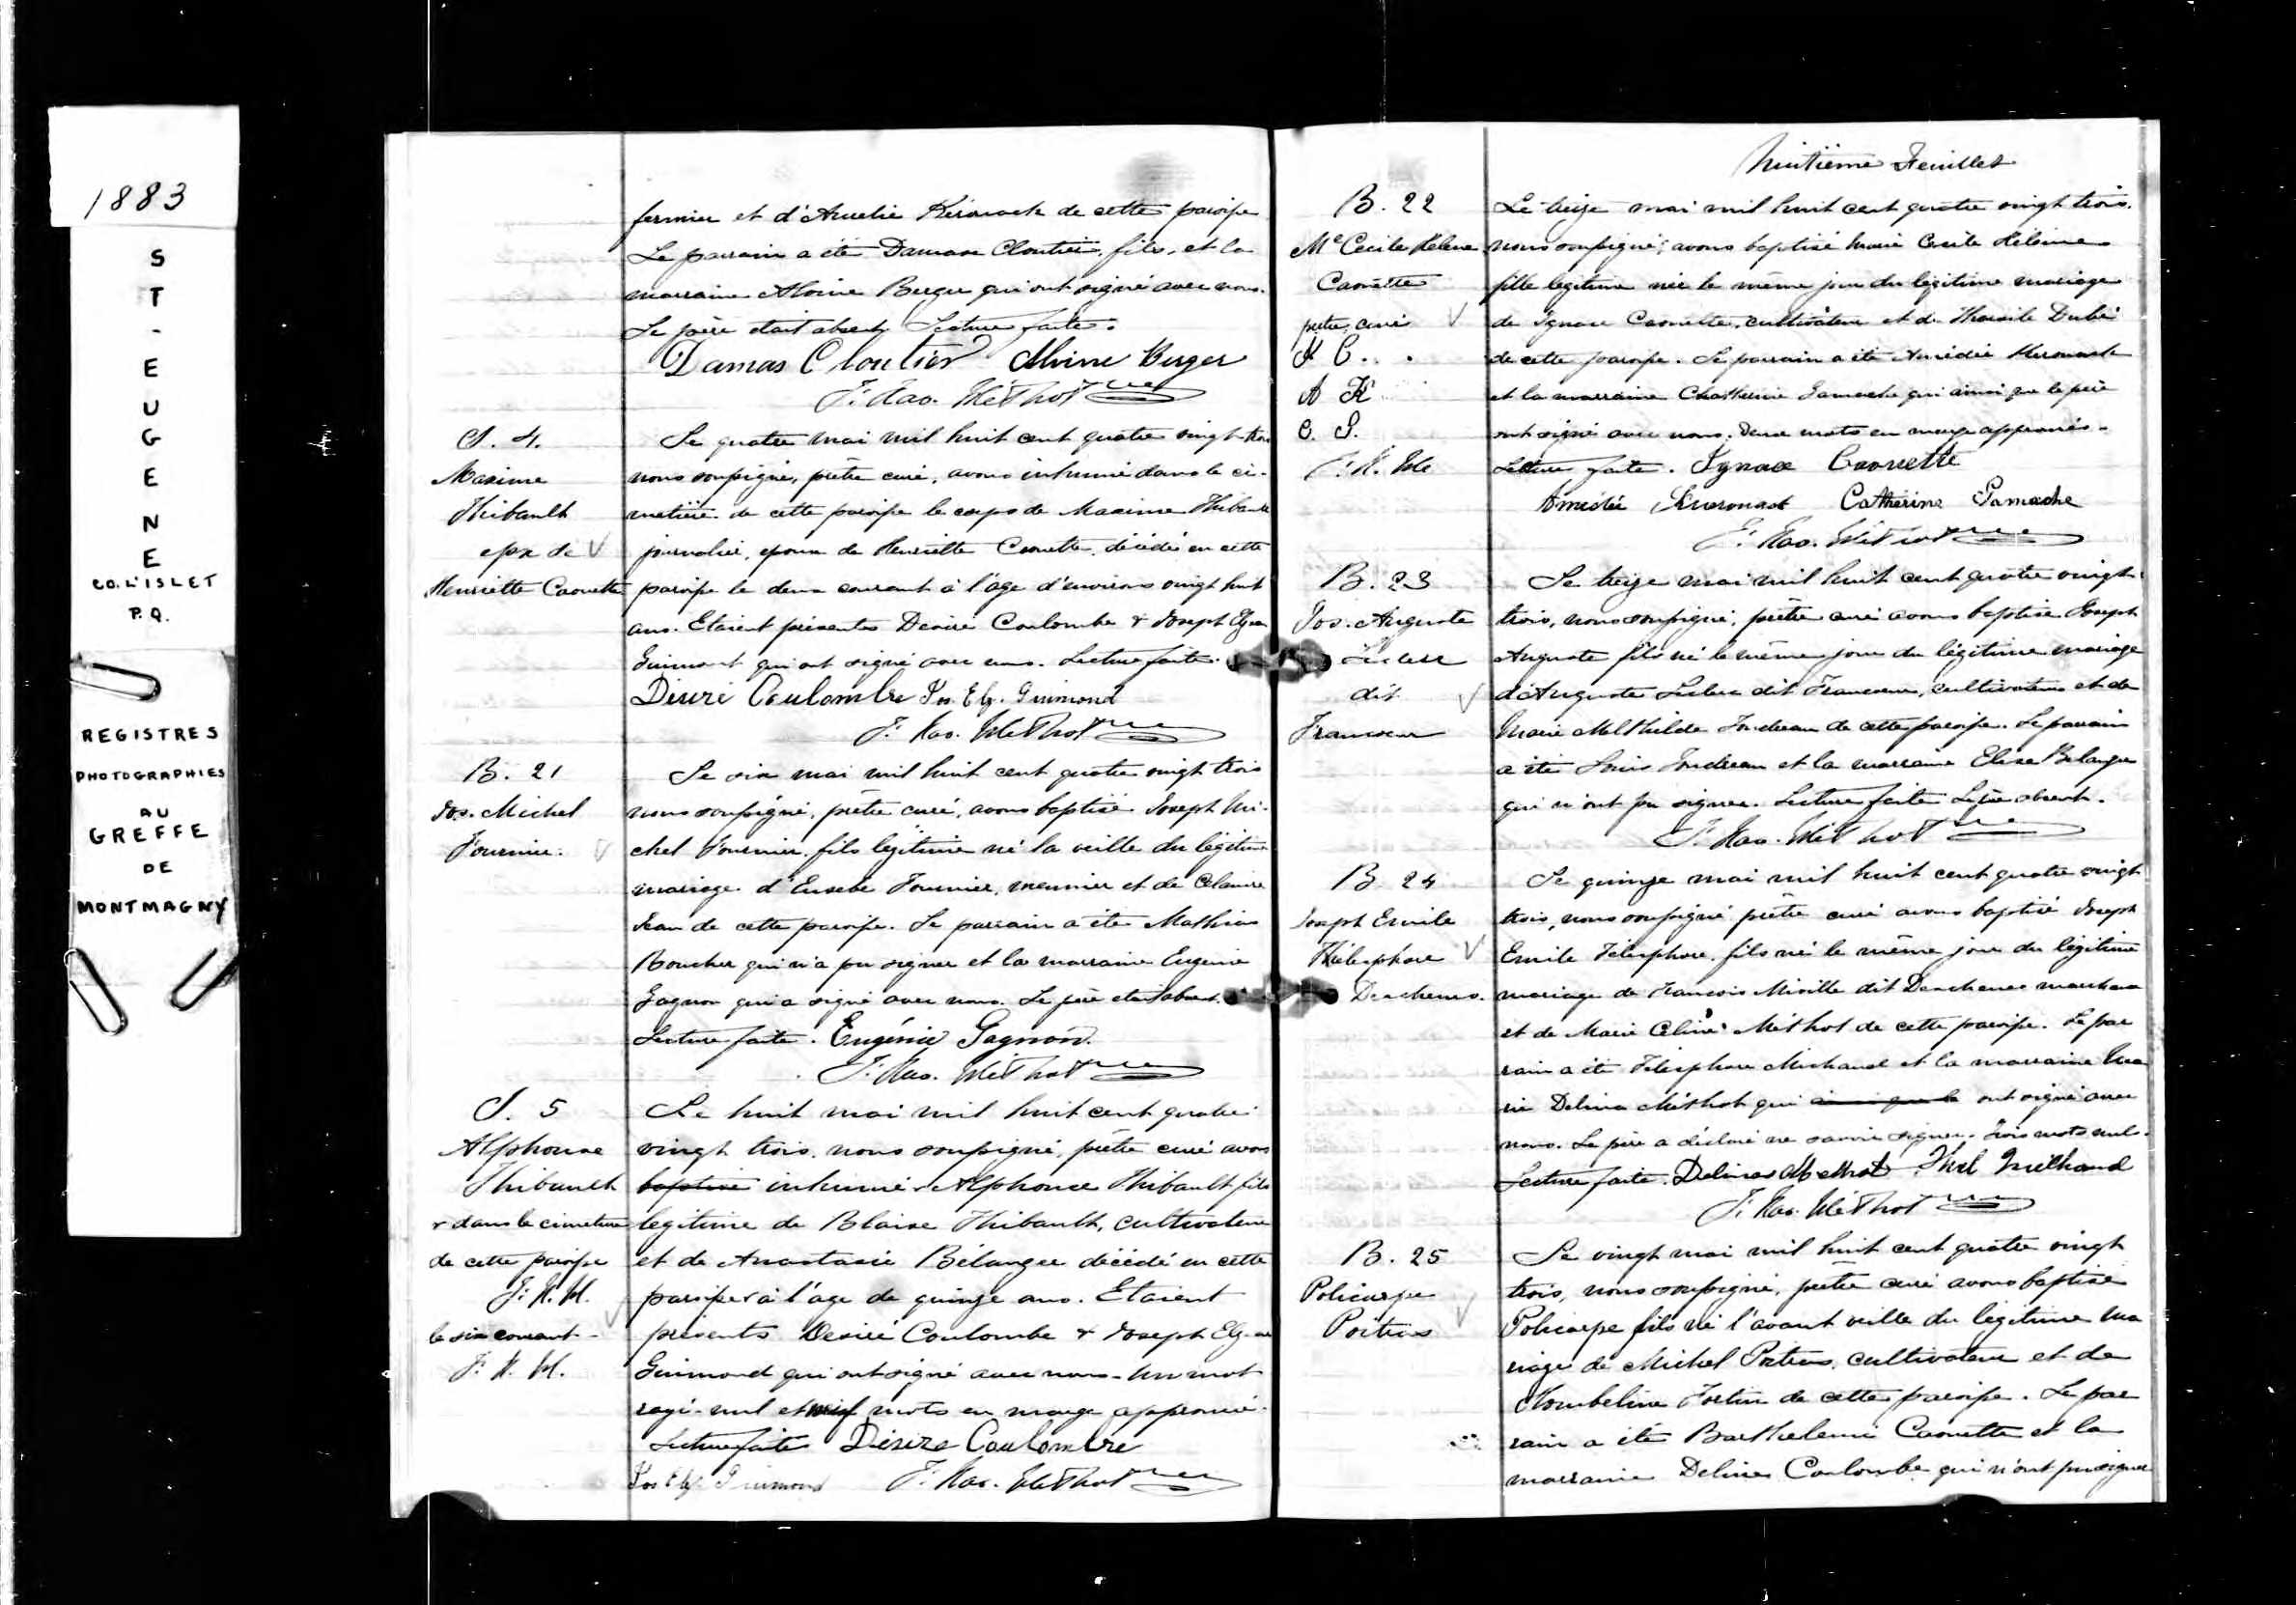 1883
ST-EUGENE
CO. L'ISLET
P.Q.
REGISTRES
PHOTOGRAPHIES
AU
GREFFE
DE
MONTMAGNY
fermier et d'Amelie Kérouack de cette paroisse
Le parrain a été Damase Cloutier, fils, et la
marraine Alvine Berger qui ont signé avec nous.
Le père était absent. Lecture faite.
Damas Cloutier Alvine Berger
F. Xav. Méthot
S. 4.
Maxime
Thibault
epx de
Henriette Caouette
Le quatre mai mil huit cent quatre vingt-trois
nous soussigné, prêtre curé, avons inhumé dans le ci-
metière de cette paroisse le corps de Maxime Thibault
journalier, epoux de Henriette Caouette, décédé en cette
paroisse le deux courant à l'âge d'environ vingt huit
ans. Etaient présents Desiré Coulombe & Joseph
Guimont qui ont signé avec nous. Lecture faite.
Desiré Coulombe Jos. Elz. Guimond
F. Xav. Méthot
B. 21
Jos. Michel
Fournier.
Le six mai mil huit cent quatre vingt trois
nous soussigné, prêtre curé, avons baptisé Joseph Mi-
chel Fournier, fils légitime né la veille du légitime
mariage d'Eusebe Fournier, meunier et de
Jean de cette paroisse. Le parrain a été Mathias
Boucher qui n'a pu signer et la marraine Eugenie
Gagnon qui a signé avec nous. Le père etait absent.
Lecture faite. Eugénie Gagnon.
F. Xav. Méthot
S. 5
Alphonse
Thibault
+ dans le cimetière
de cette paroisse
F. X. M.
le six courant -
F. X. M.
Le huit mai mil huit cent quatre
vingt trois, nous soussigné, prêtre curé avons
baptisé inhumé + Alphonse Thibault, fils
legitime de Blaise Thibault, cultivateur
et de Anastasie Bélanger décédé en cette
paroisse + à l'age de quinze ans. Etaient
présents Desiré Coulombe & Joseph Elz-
Guimond qui ont signé avec nous - Un mot
rayé nul et neuf mots en marge approuvé.
Lecture faite Désiré Coulombe
Jos Elz. Guimond F. Xav. Méthot
huitième Feuillet
B. 22
Me Cécile Hélène
Caouette
prêtre, curé
I C.
A K
C. G.
F. X. M
Le treize mai mil huit cent quatre vingt trois.
nous soussigné, avons baptisé Marie Cecile Hélène
fille legitime née le même jour du légitime mariage
de Ignace Caouette, cultivateur et de Dubé
de cette paroisse. Le parrain a été Amédée Kerouack
et la marraine Chatherine Gamache qui ainsi que le père
ont signé avec nous. Deux mots en marge approuvés.
Lecture faite. Ignace Caouette
Amédée Keerouack Catherine Gamache
F. Xav. Méthot
B. 23
Jos. Auguste
Leclerc
dit
Francoeur
Le treize mai mil huit cent quatre vingt
trois, nous soussigné, prêtre curé avons baptisé Joseph
Auguste fils né le même jour du légitime mariage
d'Auguste Leclerc dit Francoeur, cultivateur et de
Marie Mathilde de cette paroisse. Le parrain
a été Louis et la marraine Elise Belanger
qui n'ont pu signer. Lecture faite. Le père absent.
F. Xav. Méthot
B 24
Joseph Emile
Thélesphore
Deschenes.
Le quinze mai mil huit cent quatre vingt
trois, nous soussigné prêtre curé avons baptisé Joseph
Emile Télesphore, fils né le même jour du légitime
mariage de Francois Miville dit Deschenes marchand
et de Marie Celine Méthot de cette paroisse. Le par
rain a été Télesphore Michaud et la marraine Ma
rie Delima Méthot qui ainsi que le ont signé avec
nous. Le père a déclaré ne savoir signer. Trois mots nuls.
Lecture faite. Delima Methot Thel Michaud
F. Xav. Méthot
B. 25
Policarpe
Poitras
Le vingt mai mil huit cent quatre vingt
trois, nous soussigné, prêtre curé avons baptisé
Policarpe fils né l'avant veille du légitime ma
riage de Michel Poitras, cultivateur et de
Hombeline Fortin de cette paroisse. Le par
rain a été Barthelemi Caouette et la
marraine Delima Coulombe qui n'ont pu signer